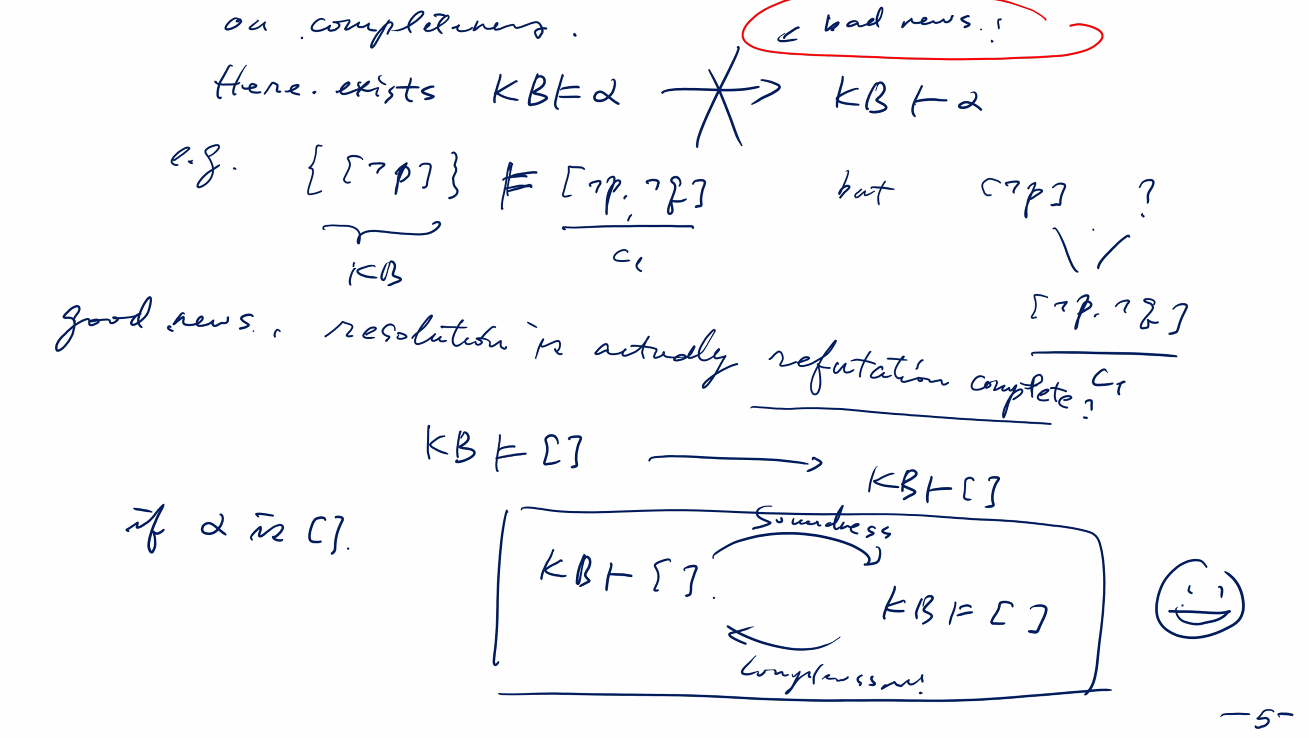 on completeness.
← bad news!
Here. exists KB ⊨ α ⟶ KB ⊢ α
e.g. { [¬p] } ⊨ [¬p, ¬q] but [¬p] ?
KB C₁ [¬p. ¬q]
good news. resolution is actually refutation complete! C₁
KB ⊨ [] ⟶ KB ⊢ []
if α is [].
Soundness
KB ⊢ []. KB ⊨ []
-5-